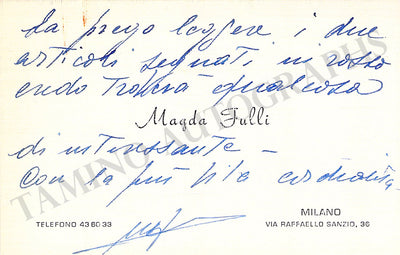 La prego leggere i due
articoli segnati in rosso
credo troverà qualcosa
Magda Fulli
di interessante -
Con la più cordialità
MILANO
TELEFONO 43 60 33
VIA RAFFAELLO SANZIO, 36
TAMINO AUTOGRAPHS